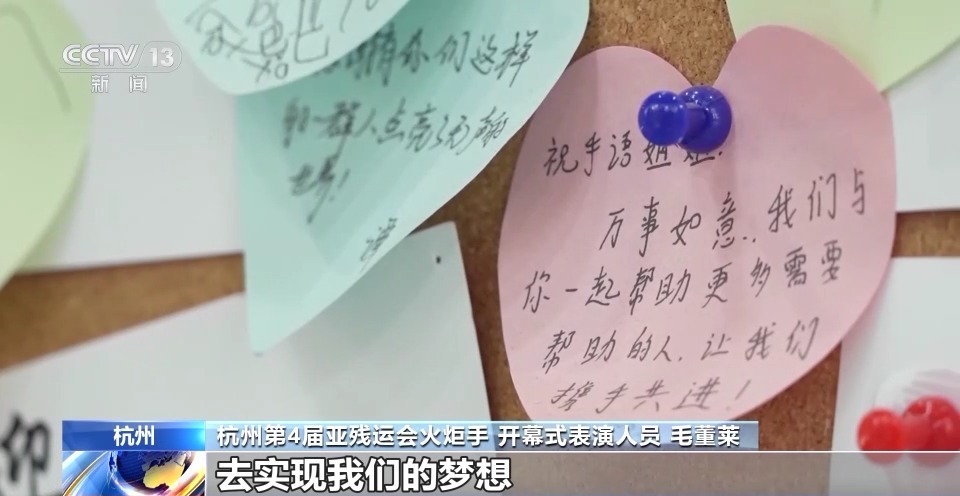 CCTV 13
新闻
你们这样
的一群人点亮了无声的
世界！
祝手语姐姐：
万事如意，我们与
你一起帮助更多需要
帮助的人，让我们
携手共进！
杭州
杭州第4届亚残运会火炬手 开幕式表演人员 毛董莱
去实现我们的梦想